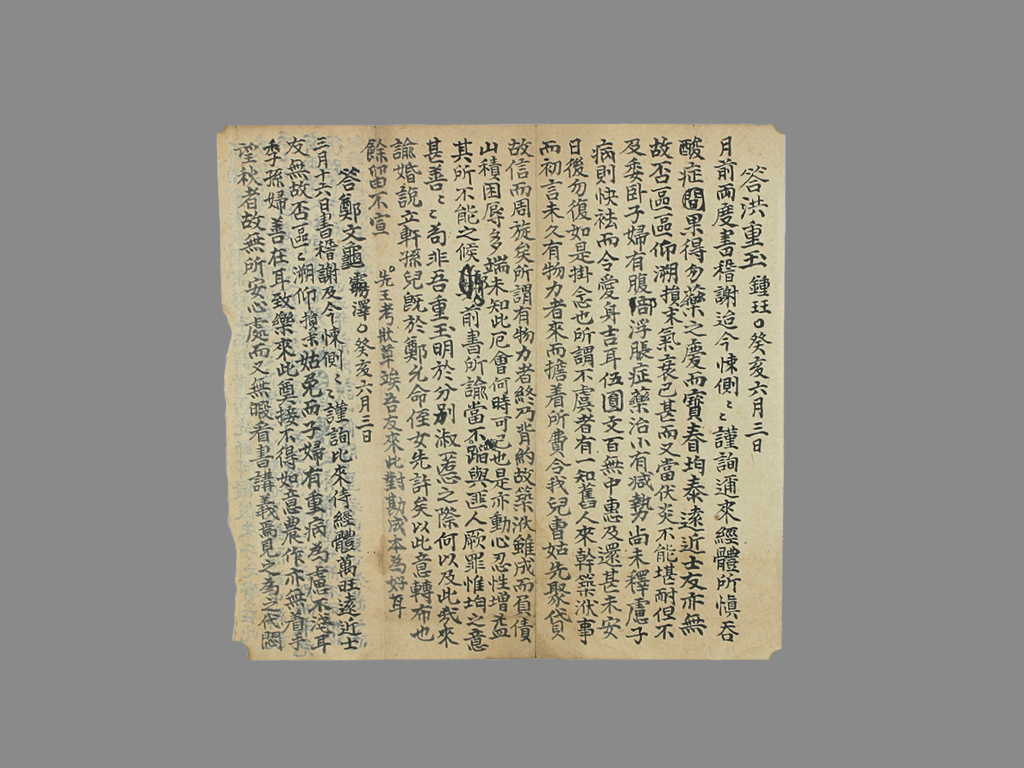 答洪重玉 鍾珏○癸亥六月三日
月前兩度書稽謝迨今悚惻〻謹詢邇來經體所愼吞
酸症間果得勿藥之慶而寶眷均泰遠近士友亦無
故否區區仰溯損末氣衰已甚而又當伏炎不能堪耐但不
及委臥子婦有腹部浮脹症藥治小有减勢尙未釋慮子
病則快祛而令愛身吉耳伍圓文百無中惠及還甚未安
日後勿復如是掛念也所謂不虞者有一知舊人來幹築洑事
而初言未久有物力者來而擔着所費令我兒曹姑先聚貸
故信而周旋矣所謂有物力者終乃背約故築洑雖成而負債
山積困辱多端未知此厄會何時可已也是亦動心忍性增益
其所不能之候 前書所諭當不蹈與匪人厥罪惟均之意
甚善〻苟非吾重玉明於分别淑慝之際何以及此哉來
諭婚說立軒孫兒旣於鄭允命侄女先許矣以此意轉布也
餘留不宣
先王考狀草竢吾友來此對勘成本為好耳
答鄭文 澤○癸亥六月三日
三月十六日書稽謝及今悚惻〻謹詢比來侍經體萬旺遠近士
友無故否區〻溯仰損末姑免而子婦有重病為慮不淺耳
季孫婦善在耳致樂來此奠接不得如意農作亦無着手
望秋者故無所安心處而又無暇看書講義焉見之為之代悶